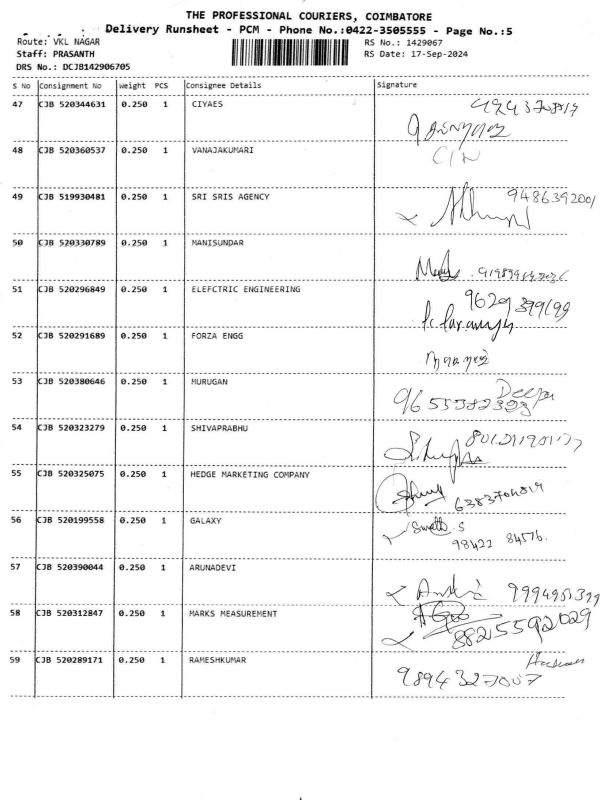 THE PROFESSIONAL COURIERS, COIMBATORE
Delivery Runsheet - PCM - Phone No.:0422-3505555 - Page No.:5
Route: VKL NAGAR
RS No.: 1429067
Staff: PRASANTH
RS Date: 17-Sep-2024
DRS No.: DCJB142906705
S No Consignment No Weight PCS Consignee Details Signature
47 CJB 520344631 0.250 1 CIYAES
48 CJB 520360537 0.250 1 VANAJAKUMARI
C/N
49 CJB 519930481 0.250 1 SRI SRIS AGENCY
9486392001
50 CJB 520330789 0.250 1 MANISUNDAR
51 CJB 520296849 0.250 1 ELEFCTRIC ENGINEERING
9629 399699
52 CJB 520291689 0.250 1 FORZA ENGG
53 CJB 520380646 0.250 1 MURUGAN
Deepa
54 CJB 520323279 0.250 1 SHIVAPRABHU
55 CJB 520325075 0.250 1 HEDGE MARKETING COMPANY
56 CJB 520199558 0.250 1 GALAXY
98422 84576.
57 CJB 520390044 0.250 1 ARUNADEVI
58 CJB 520312847 0.250 1 MARKS MEASUREMENT
8825592029
59 CJB 520289171 0.250 1 RAMESHKUMAR
9894327007